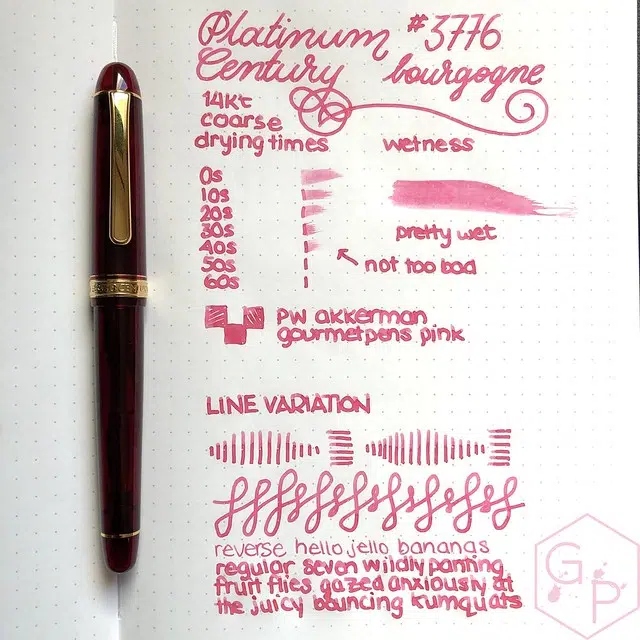 Platinum #3776
Century bourgogne
14kt
coarse
drying times wetness
0s
10s
20s
30s
40s
50s
60s
pretty wet
not too bad
PW akkerman
gourmetpens pink
LINE VARIATION
reverse hello jello bananas
regular seven wildly panting
fruit flies gazed anxiously at
the juicy bouncing kumquats
G P